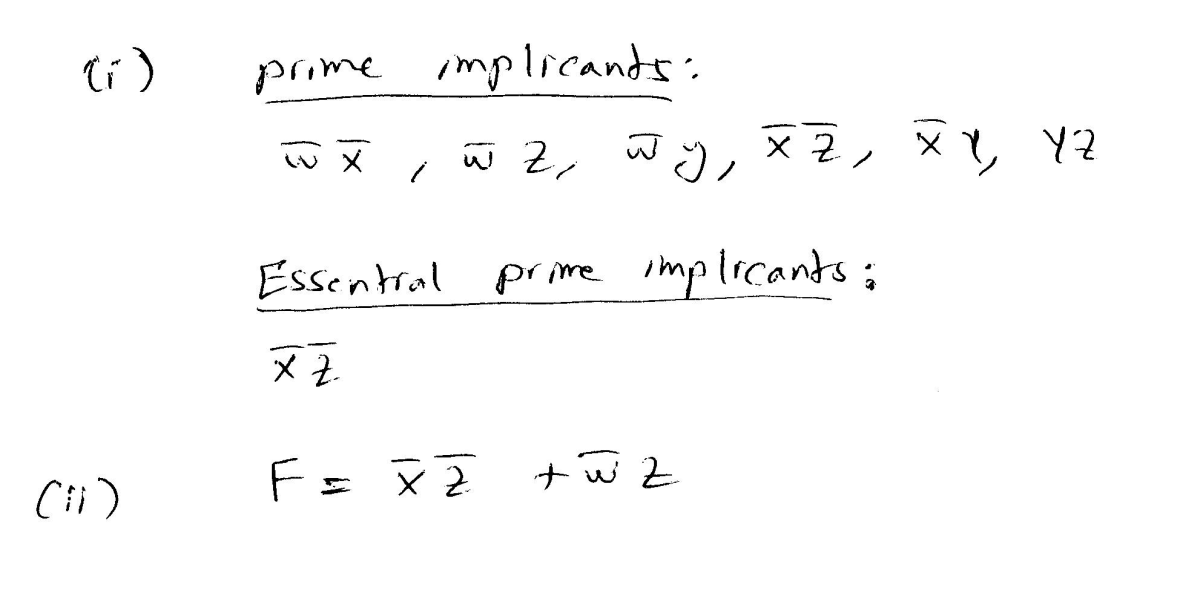 (i) prime implicants:
w̅ x̅ , w̅ z, w̅ y, x̅ z̅, x̅ y, yz
Essential prime implicants:
x̅ z̅
(ii) F = x̅ z̅ + w̅ z